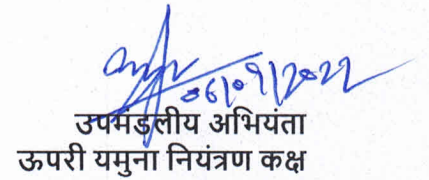 06/09/2022
उपमंडलीय अभियंता
ऊपरी यमुना नियंत्रण कक्ष